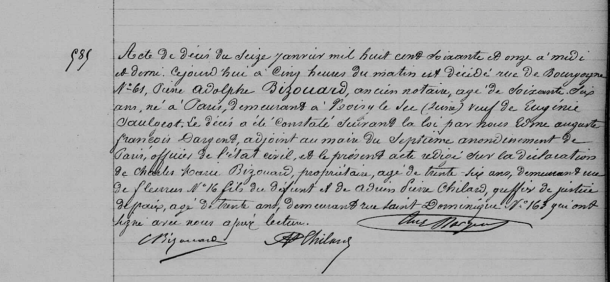 585
Acte de décès du seize janvier mil huit cent soixante et onze à midi
et demi. Cejourd'hui à cinq heures du matin est décédé rue de Bourgogne
N° 61, Pierre Adolphe Bizouard, ancien notaire, agé de soixante six
ans, né à Paris, demeurant à Noisy le Sec (Seine) veuf de Eugénie
Saulocot. Le décès a été constaté suivant la loi par nous Edme auguste
françois Dargent, adjoint au maire du Septième arrondissement de
Paris, officier de l'état civil, et le présent acte rédigé sur la déclaration
de Charles Marie Bizouard, propriétaire, agé de trente six ans, demeurant rue
de fleurus N° 16 fils du défunt et de adrien Pierre Chilard, greffier de justice
de paix, agé de trente ans, demeurant rue saint Dominique N° 163 qui ont
signé avec nous après lecture.
CBizouard AP Chilard